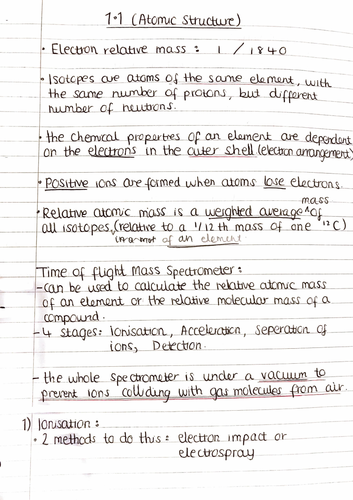 1.1 (Atomic Structure)
• Electron relative mass : 1 / 1840
• Isotopes are atoms of the same element, with
the same number of protons, but different
number of neutrons.
• the chemical properties of an element are dependent
on the electrons in the outer shell (electron arrangement)
• POSITIVE ions are formed when atoms lose electrons
mass
• Relative atomic mass is a weighted average ^ of
all isotopes, (relative to a 1/12 th mass of one ¹²C)
of an element
Time of flight Mass Spectrometer :
- can be used to calculate the relative atomic mass
of an element or the relative molecular mass of a
compound.
- 4 stages : Ionisation, Acceleration, Seperation of
ions, Detection.
- the whole spectrometer is under a vacuum to
prevent ions colliding with gas molecules from air.
1) Ionisation :
• 2 methods to do this : electron impact or
electrospray